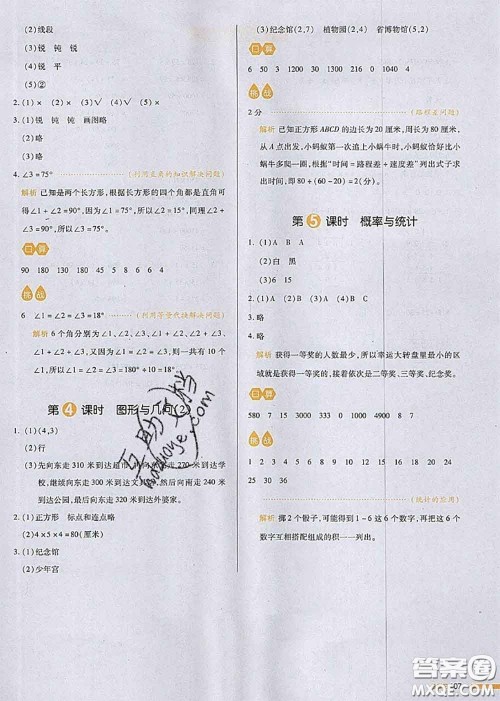 (2)线段
(3)锐 钝 锐
(4)锐 平
(5)②
2.(1)× (2)× (3)√ (4)×
3.(1)锐 钝 钝 画图略
(2)略
(3)略
4.∠3=75° (利用直角的知识解决问题)
解析 已知是两个长方形,根据长方形的四个角都是直角可
得∠1+∠2=90°,因为∠1=75°,所以∠2=15°。因为∠2+
∠3=90°,所以∠3=75°。
口算
90 180 130 180 45 60 30 60
挑战
6 ∠1=∠2=∠3=18° (利用等量代换解决问题)
解析 6个角分别为∠1、∠2、∠3、∠1+∠2、∠2+∠3、
∠1+∠2+∠3,又因为∠1=∠2=∠3,则一共有10个
∠1,所以∠1=∠2=∠3=180°÷10=18°。
第4课时 图形与几何(2)
1.(1)(4,3)
(2)行
(3)先向东走310米到达超市,再向东走270米到达
学校,继续向东走340米到达文具店,然后向北走240
米到达公园,最后向东走320米到达外婆家。
2.(1)正方形 标点和连点略
(2)4×5×4=80(厘米)
3.(1)纪念馆
(2)少年宫
(3)纪念馆(2,7) 植物园(2,4) 省博物馆(5,2)
口算
6 50 3 1200 30 1300 6 210 4000 4
挑战
2分 (路程差问题)
解析 已知正方形ABCD的边长为20厘米,周长为80厘米,
从A点出发,小蚂蚁第一次追上小蜗牛时,小蚂蚁恰好比小
蜗牛多爬一圈,根据“时间=路程差÷速度差”列出式子求
出时间:80÷(60-20)=2(分)。
第5课时 概率与统计
1.(1)A B A
(2)白 黑
(3)6 15
2.(1)A (2)A (3)C (4)B
3.略
4.略
解析 获得一等奖的人数最少,所以幸运大转盘里最小的区
域就是获得一等奖的,接着依次是二等奖、三等奖、纪念奖。
口算
580 7 15 3000 330 6 9 720 4500 9
挑战
1 2 3 4 5 6 8 9 10 12 15 16 18 20
24 25 30 36
(统计的应用)
解析 掷2个骰子,可能得到1-6这6个数字,再把这6个
数字互相搭配组成的积一一列出。
互助文档
答案圈
MXQE.COM